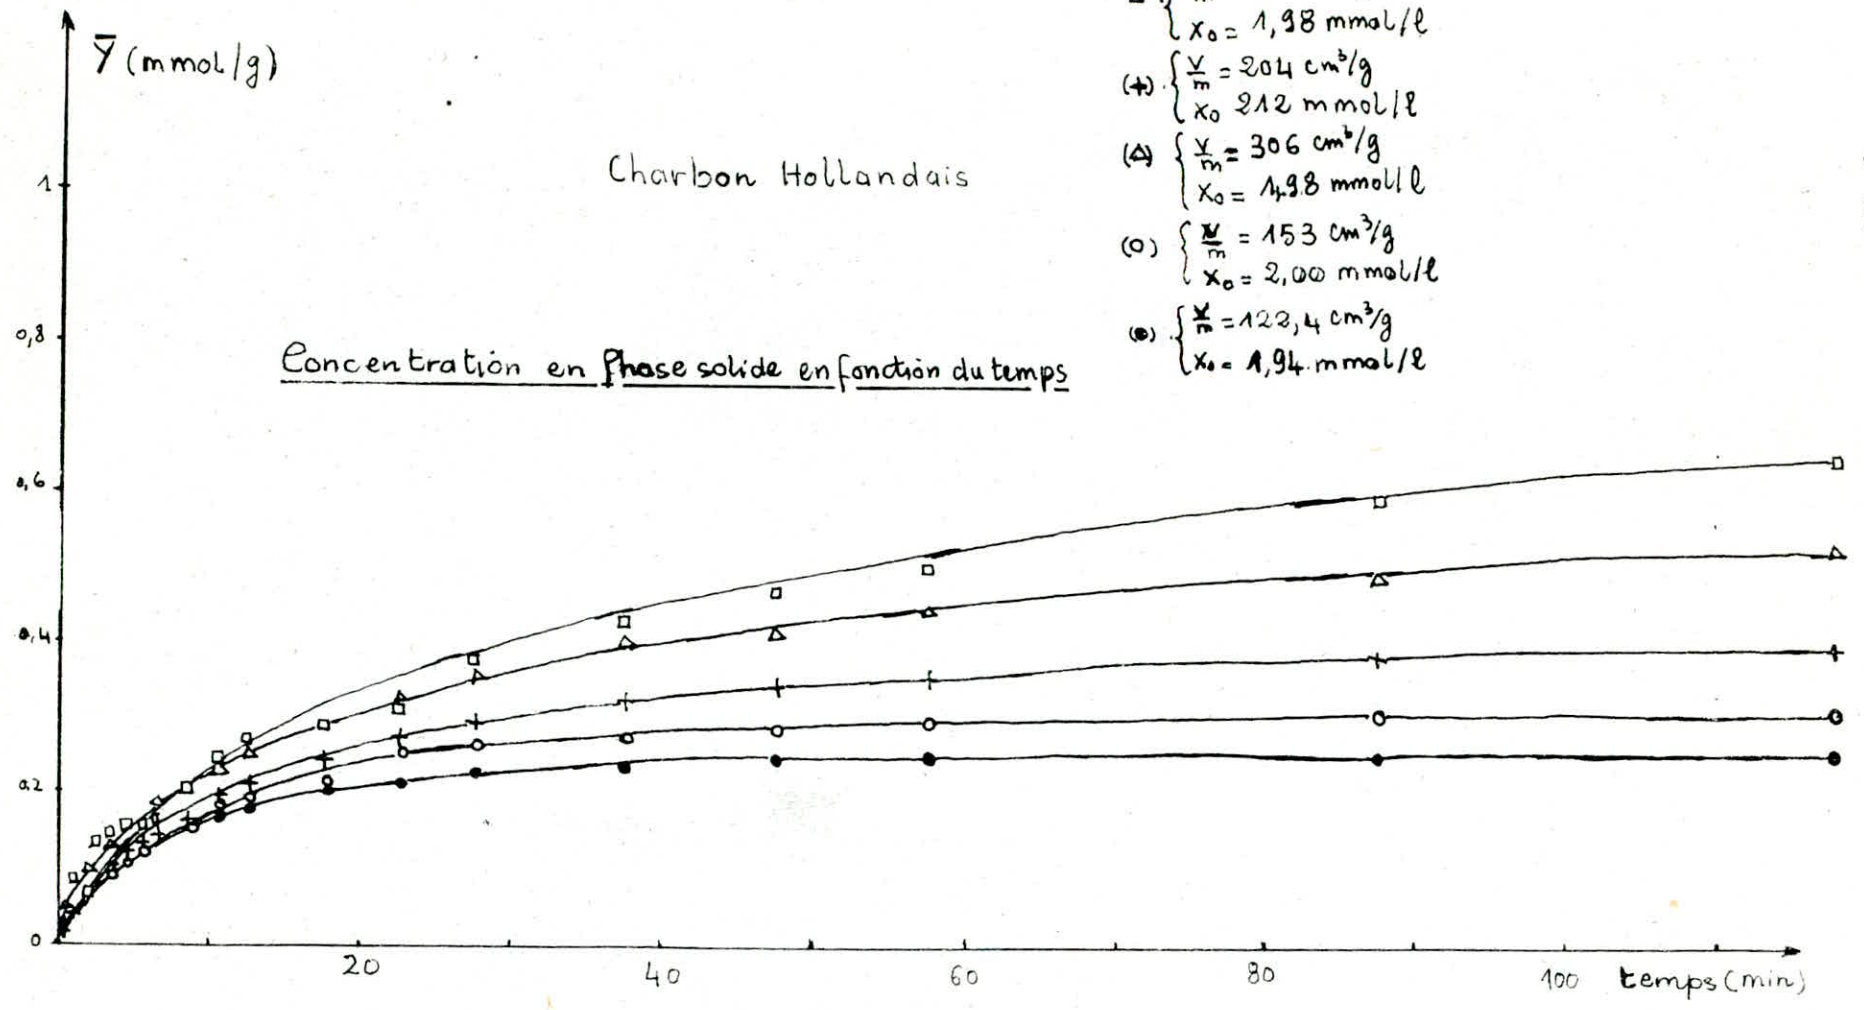 Ȳ (mmol/g)
x₀ = 1,98 mmol/l
(+) { v/m = 204 cm³/g
x₀ 212 mmol/l
(△) { v/m = 306 cm³/g
x₀ = 1,98 mmol/l
(o) { v/m = 153 cm³/g
x₀ = 2,00 mmol/l
(●) { v/m = 122,4 cm³/g
x₀ = 1,94 mmol/l
Charbon Hollandais
Concentration en Phase solide en fonction du temps
1
0,8
0,6
0,4
0,2
0
20 40 60 80 100 temps (min)